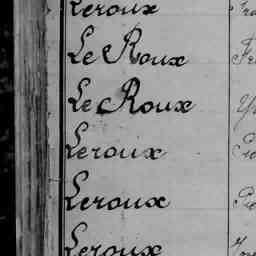 Leroux
Le Roux
Le Roux
Leroux
Leroux
Leroux